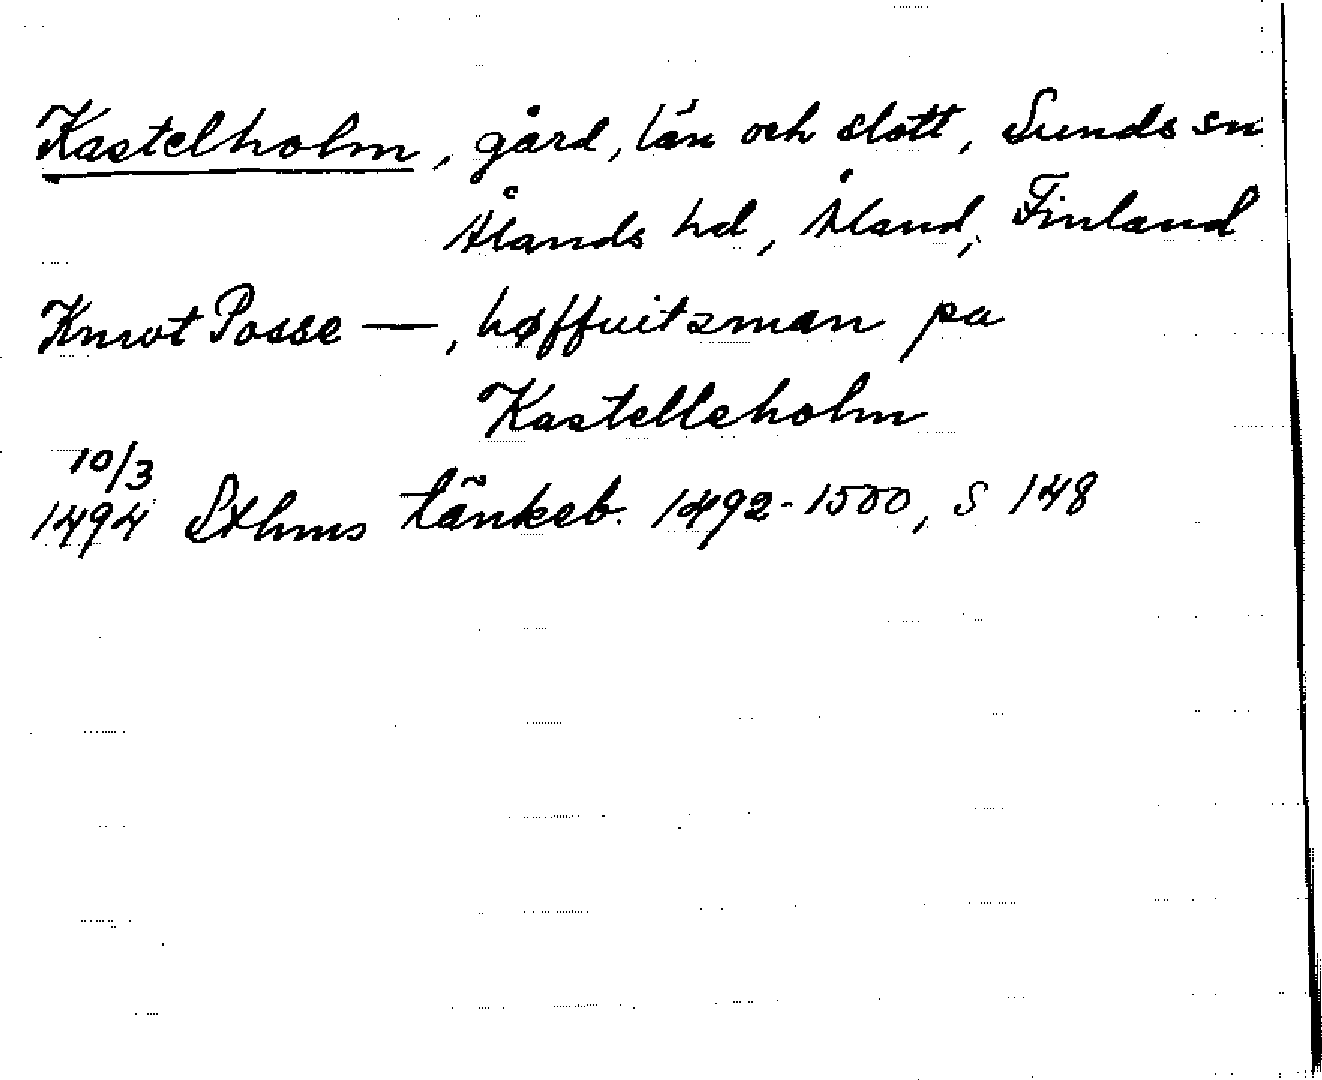 Kastelholm, gård, län och slott, Sunds sn
Ålands hd, Åland, Finland
Knwt Posse —, høffuitzman pa
Kastelleholm
10/3
1494 Sthms tänkeb. 1492-1500, S 148